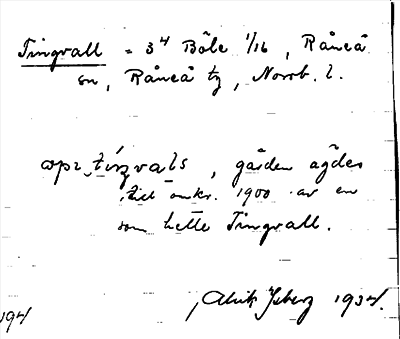 Tingvall = 3⁴ Böle 1/16, Råneå
sn, Råneå tg, Norrb. l.
gården ägdes
till omkr. 1900 av en
som hette Tingvall.
1934.
194